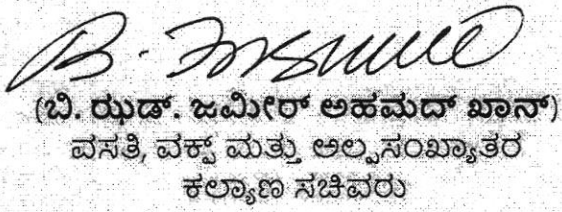 (ಬಿ. ಝಡ್. ಜಮೀರ್ ಅಹಮದ್ ಖಾನ್)
ವಸತಿ, ವಕ್ಫ್ ಮತ್ತು ಅಲ್ಪಸಂಖ್ಯಾತರ
ಕಲ್ಯಾಣ ಸಚಿವರು